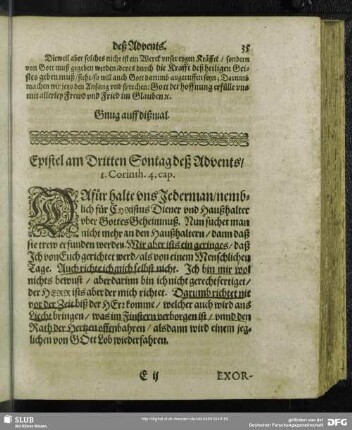 deß Advents. 35
Dieweil aber solches nicht ist ein Werck vnser eigen Kräfft / sondern
von Gott muß gegeben werden / deren durch die Krafft deß heiligen Gei-
stes geben muß / sihe / so will auch Gott darumb angeruffen seyn. Darumb
machen wir jetzo den Anfang vnd sprechen: Gott der hoffnung erfülle vns
mit allerley Frewd vnd Fried im Glauben ꝛc.
Gnug auff dißmal.
Epistel am Dritten Sontag deß Advents /
1. Corinth. 4. cap.
DAfür halte vns Jederman / nemb-
lich für CHristus Diener vnd Haußhalter
vber Gottes Geheimnuß. Nun suchet man
nicht mehr an den Haußhaltern / dann daß
sie trew erfunden werden. Mir aber ists ein geringes / daß
Ich von Euch gerichtet werd / als von einem Menschlichen
Tage. Auch richte ich mich selbst nicht. Ich bin mir wol
nichts bewust / aber darinn bin ich nicht gerechtfertiget /
der HERR ists aber der mich richtet. Darumb richtet nit
vor der Zeit / biß der HErr komme / welcher auch wird ans
Liecht bringen / was im Finstern verborgen ist / vnnd den
Rath der Hertzen offenbahren / alsdann wird einem jeg-
lichen von GOtt Lob wiederfahren.
E ij EXOR-
SLUB
Wir führen Wissen.
gefördert von der
Deutschen Forschungsgemeinschaft
DFG